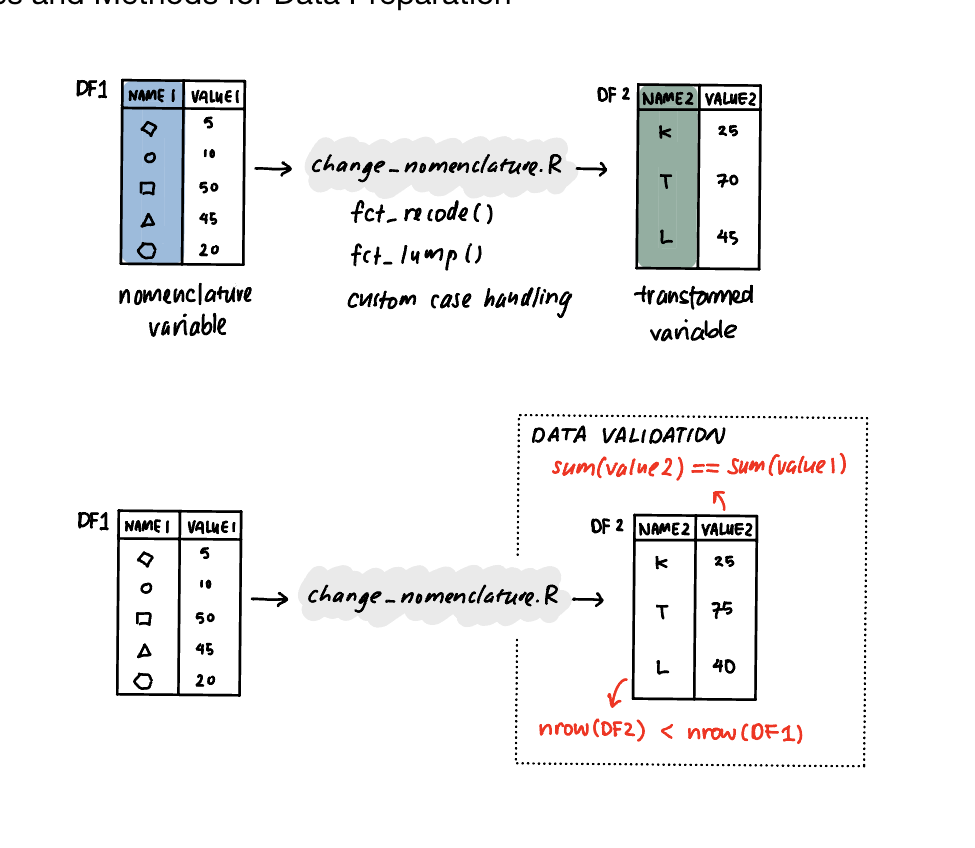 and Methods for Data Preparation
DF1
NAME 1 VALUE1
5
10
50
45
20
nomenclature
variable
change_nomenclature.R
fct_recode()
fct_lump()
custom case handling
DF 2
NAME2 VALUE2
K 25
T 70
L 45
transformed
variable
DF1
NAME 1 VALUE1
5
10
50
45
20
change_nomenclature.R
DATA VALIDATION
sum(value2) == sum(value1)
DF 2
NAME2 VALUE2
K 25
T 75
L 40
nrow(DF2) < nrow(DF1)